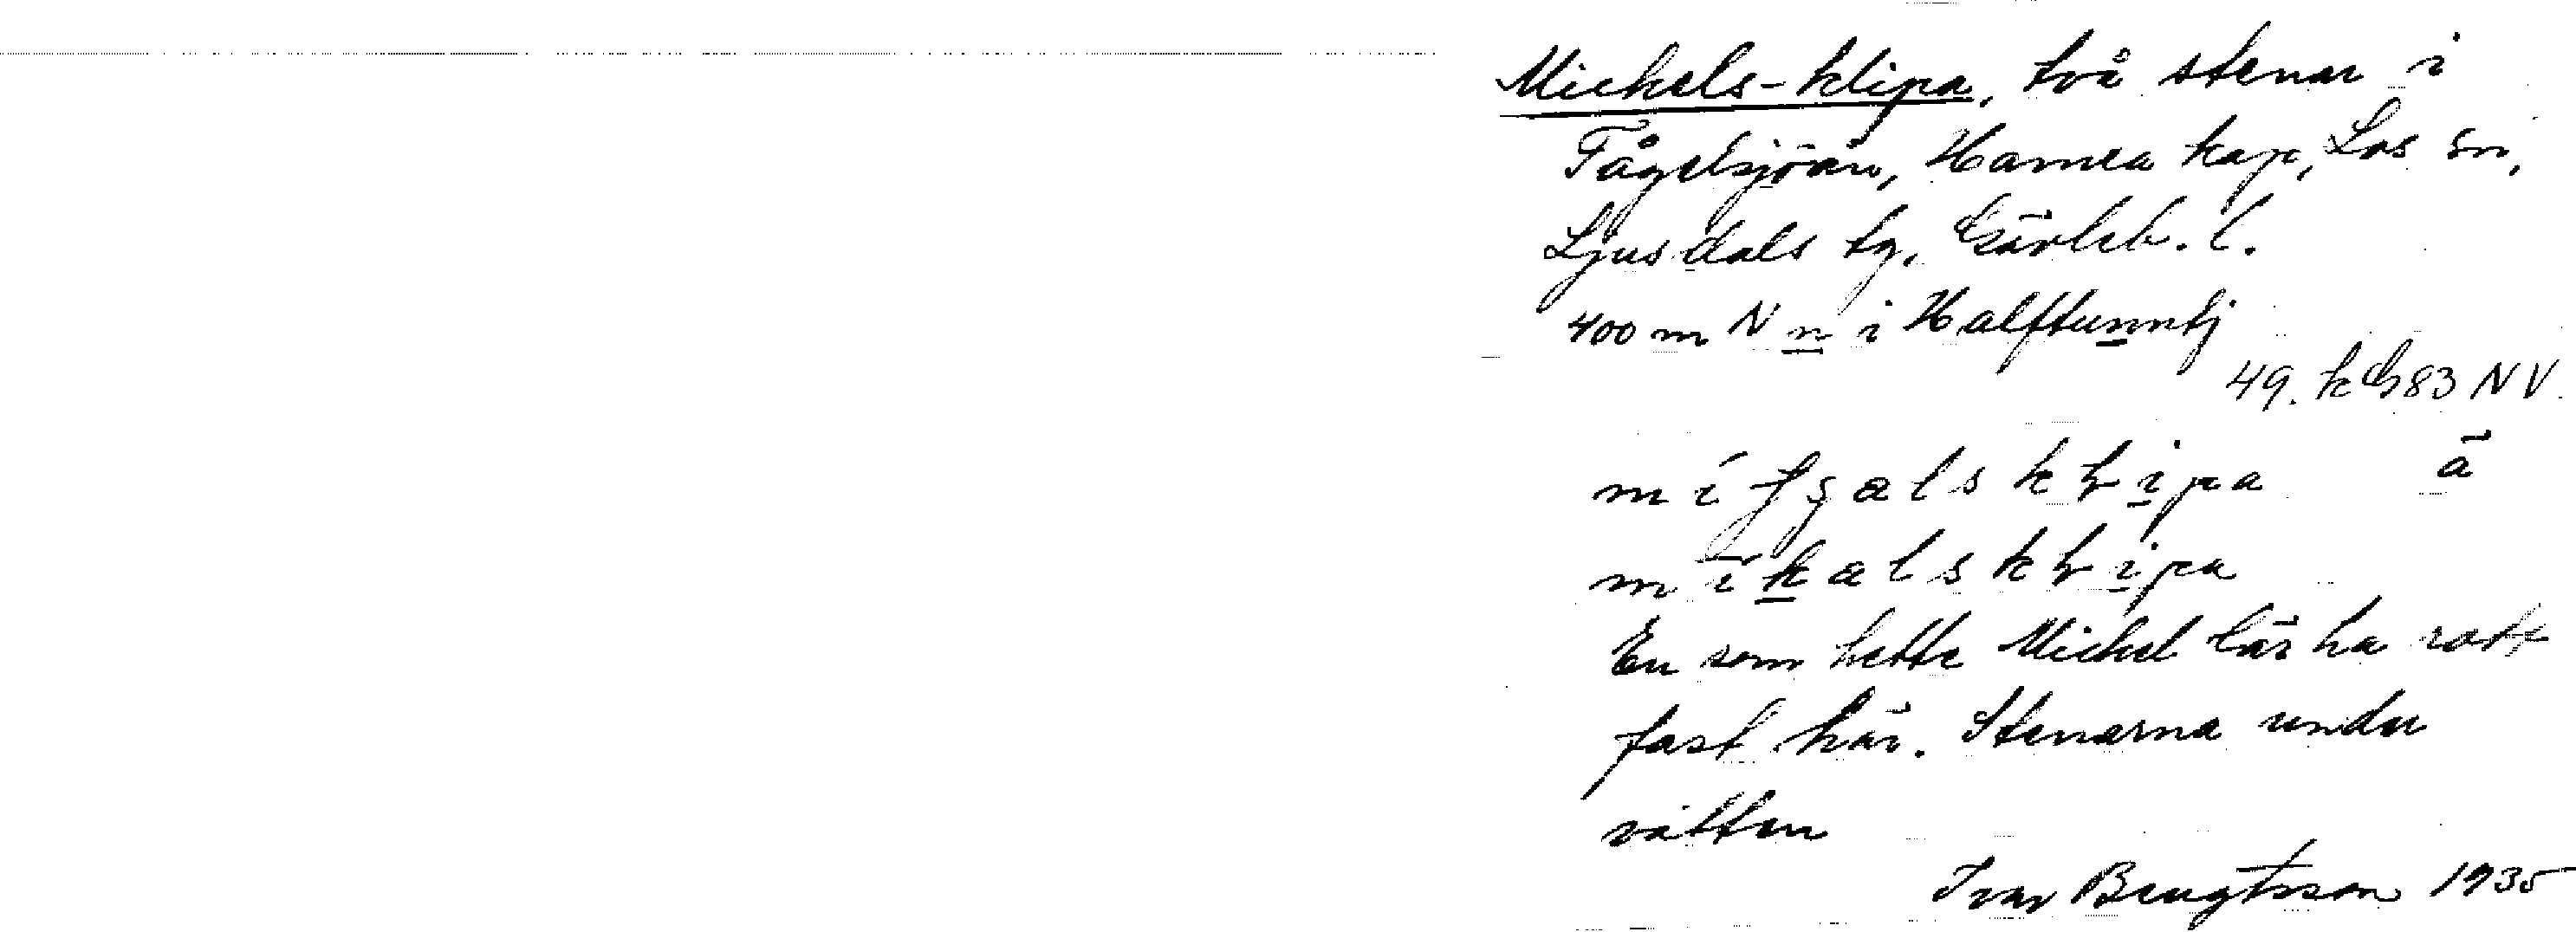 Michels-klipa, två stenar i
Fågelsjöån, Hamra kap, Los sn,
Ljusdals tg, Gävleb. l.
400 m N n i Halftunntj
49. k G 83 NV.
ä
En som hette Michel lär ha rott
fast här. Stenarna under
vatten
Ivar Bengtsson 1935